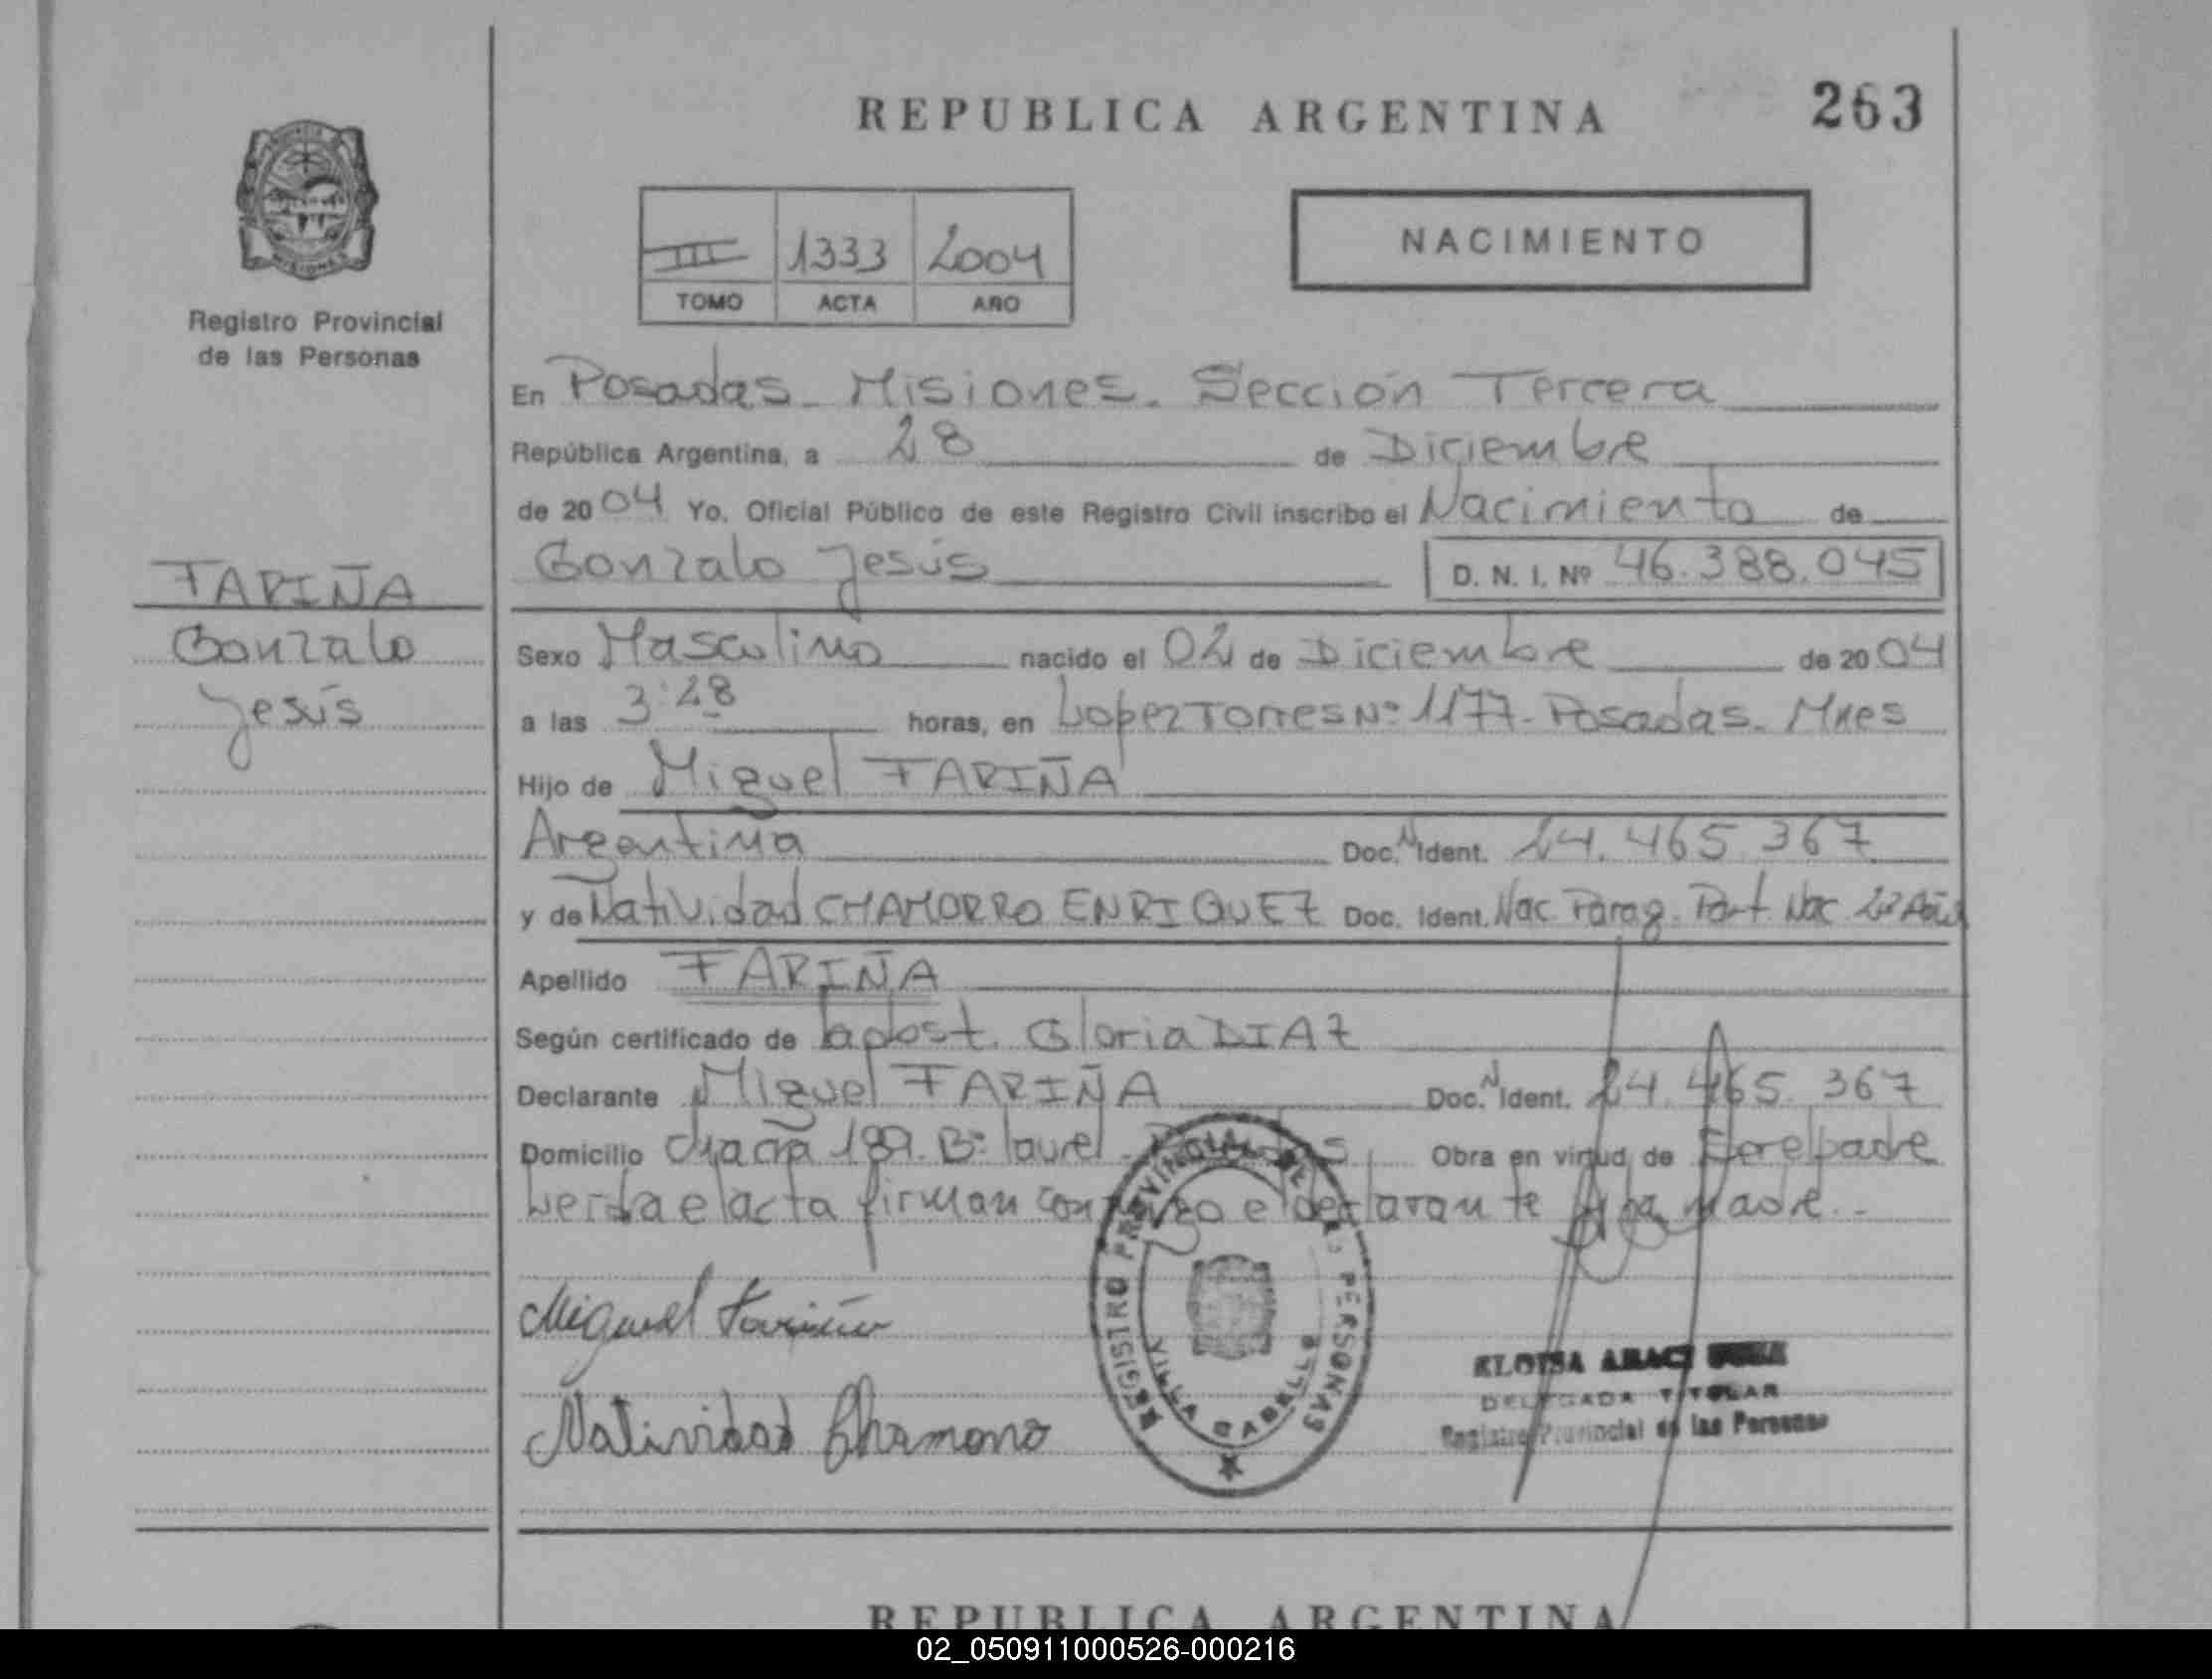 REPUBLICA ARGENTINA
263
III 1333 2004
TOMO ACTA AÑO
NACIMIENTO
Registro Provincial
de las Personas
En Posadas - Misiones. Sección Tercera
República Argentina, a 28 de Diciembre
de 2004 Yo, Oficial Público de este Registro Civil inscribo el Nacimiento de
Gonzalo Jesús D. N. I. Nº 46.388.045
FARIÑA
Gonzalo
Jesús
Sexo Masculino nacido el 02 de Diciembre de 2004
a las 3:28 horas, en Lopez Torres Nº 1177 - Posadas - Mnes
Hijo de Miguel FARIÑA
Argentina Doc. N Ident. 24.465.367
y de Natividad CHAMORRO ENRIQUEZ Doc. Ident. Nac. Parag. Part. Nac.
Apellido FARIÑA
Según certificado de Gloria DIAZ
Declarante Miguel FARIÑA Doc. N Ident. 24.465.367
Domicilio Chacra 189. Bº Laurel - Posadas Obra en virtud de Ser el padre
Leída el acta firman conmigo el declarante y la madre.-
Miguel Fariña
Natividad Chamorro
REGISTRO PROVINCIAL DE LAS PERSONAS
VILLA CABELLO
ELOISA
DELEGADA TITULAR
Registro Provincial de las Personas
REPUBLICA ARGENTINA
02_050911000526-000216